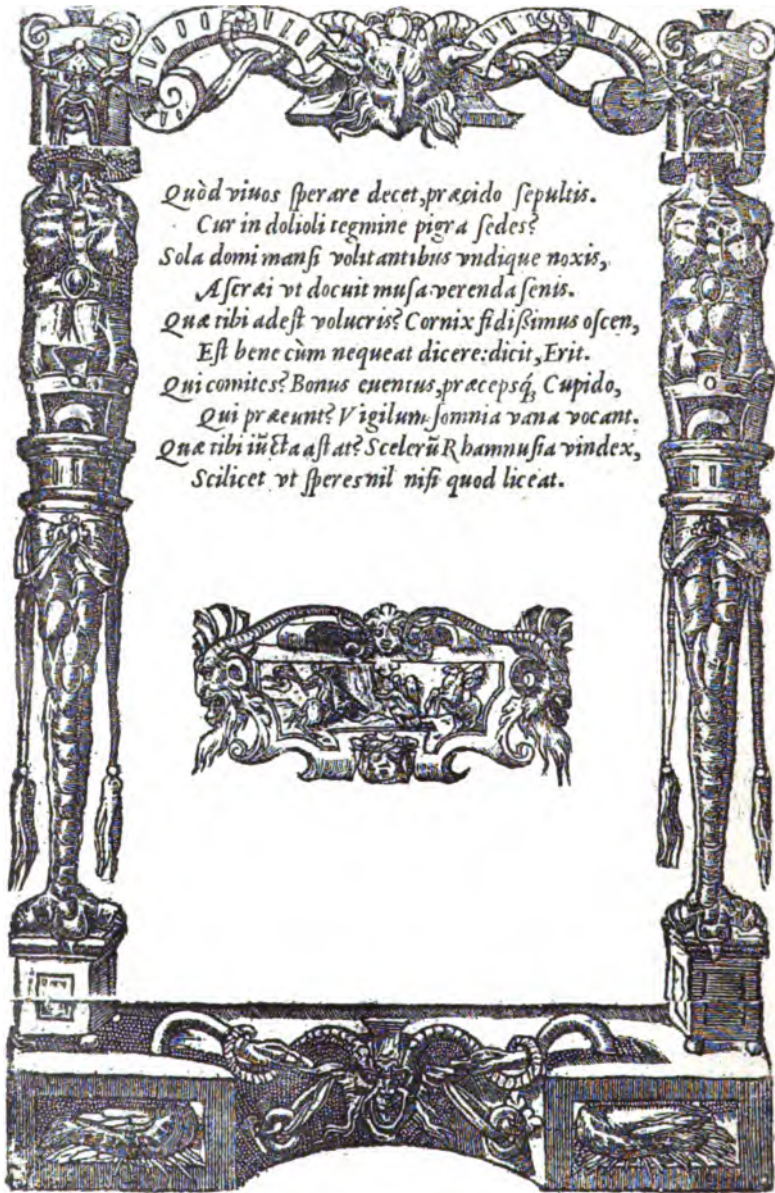 Quòd viuos sperare decet, præcido sepultis.
Cur in dolioli tegmine pigra sedes?
Sola domi mansi volitantibus vndique noxis,
Ascræi vt docuit musa verenda senis.
Quæ tibi adest volucris? Cornix fidissimus oscen,
Est bene cùm nequeat dicere: dicit, Erit.
Qui comites? Bonus euentus, præcepsq́; Cupido,
Qui præeunt? Vigilum somnia vana vocant.
Quæ tibi iūcta astat? Scelerū Rhamnusia vindex,
Scilicet vt speres nil nisi quod liceat.